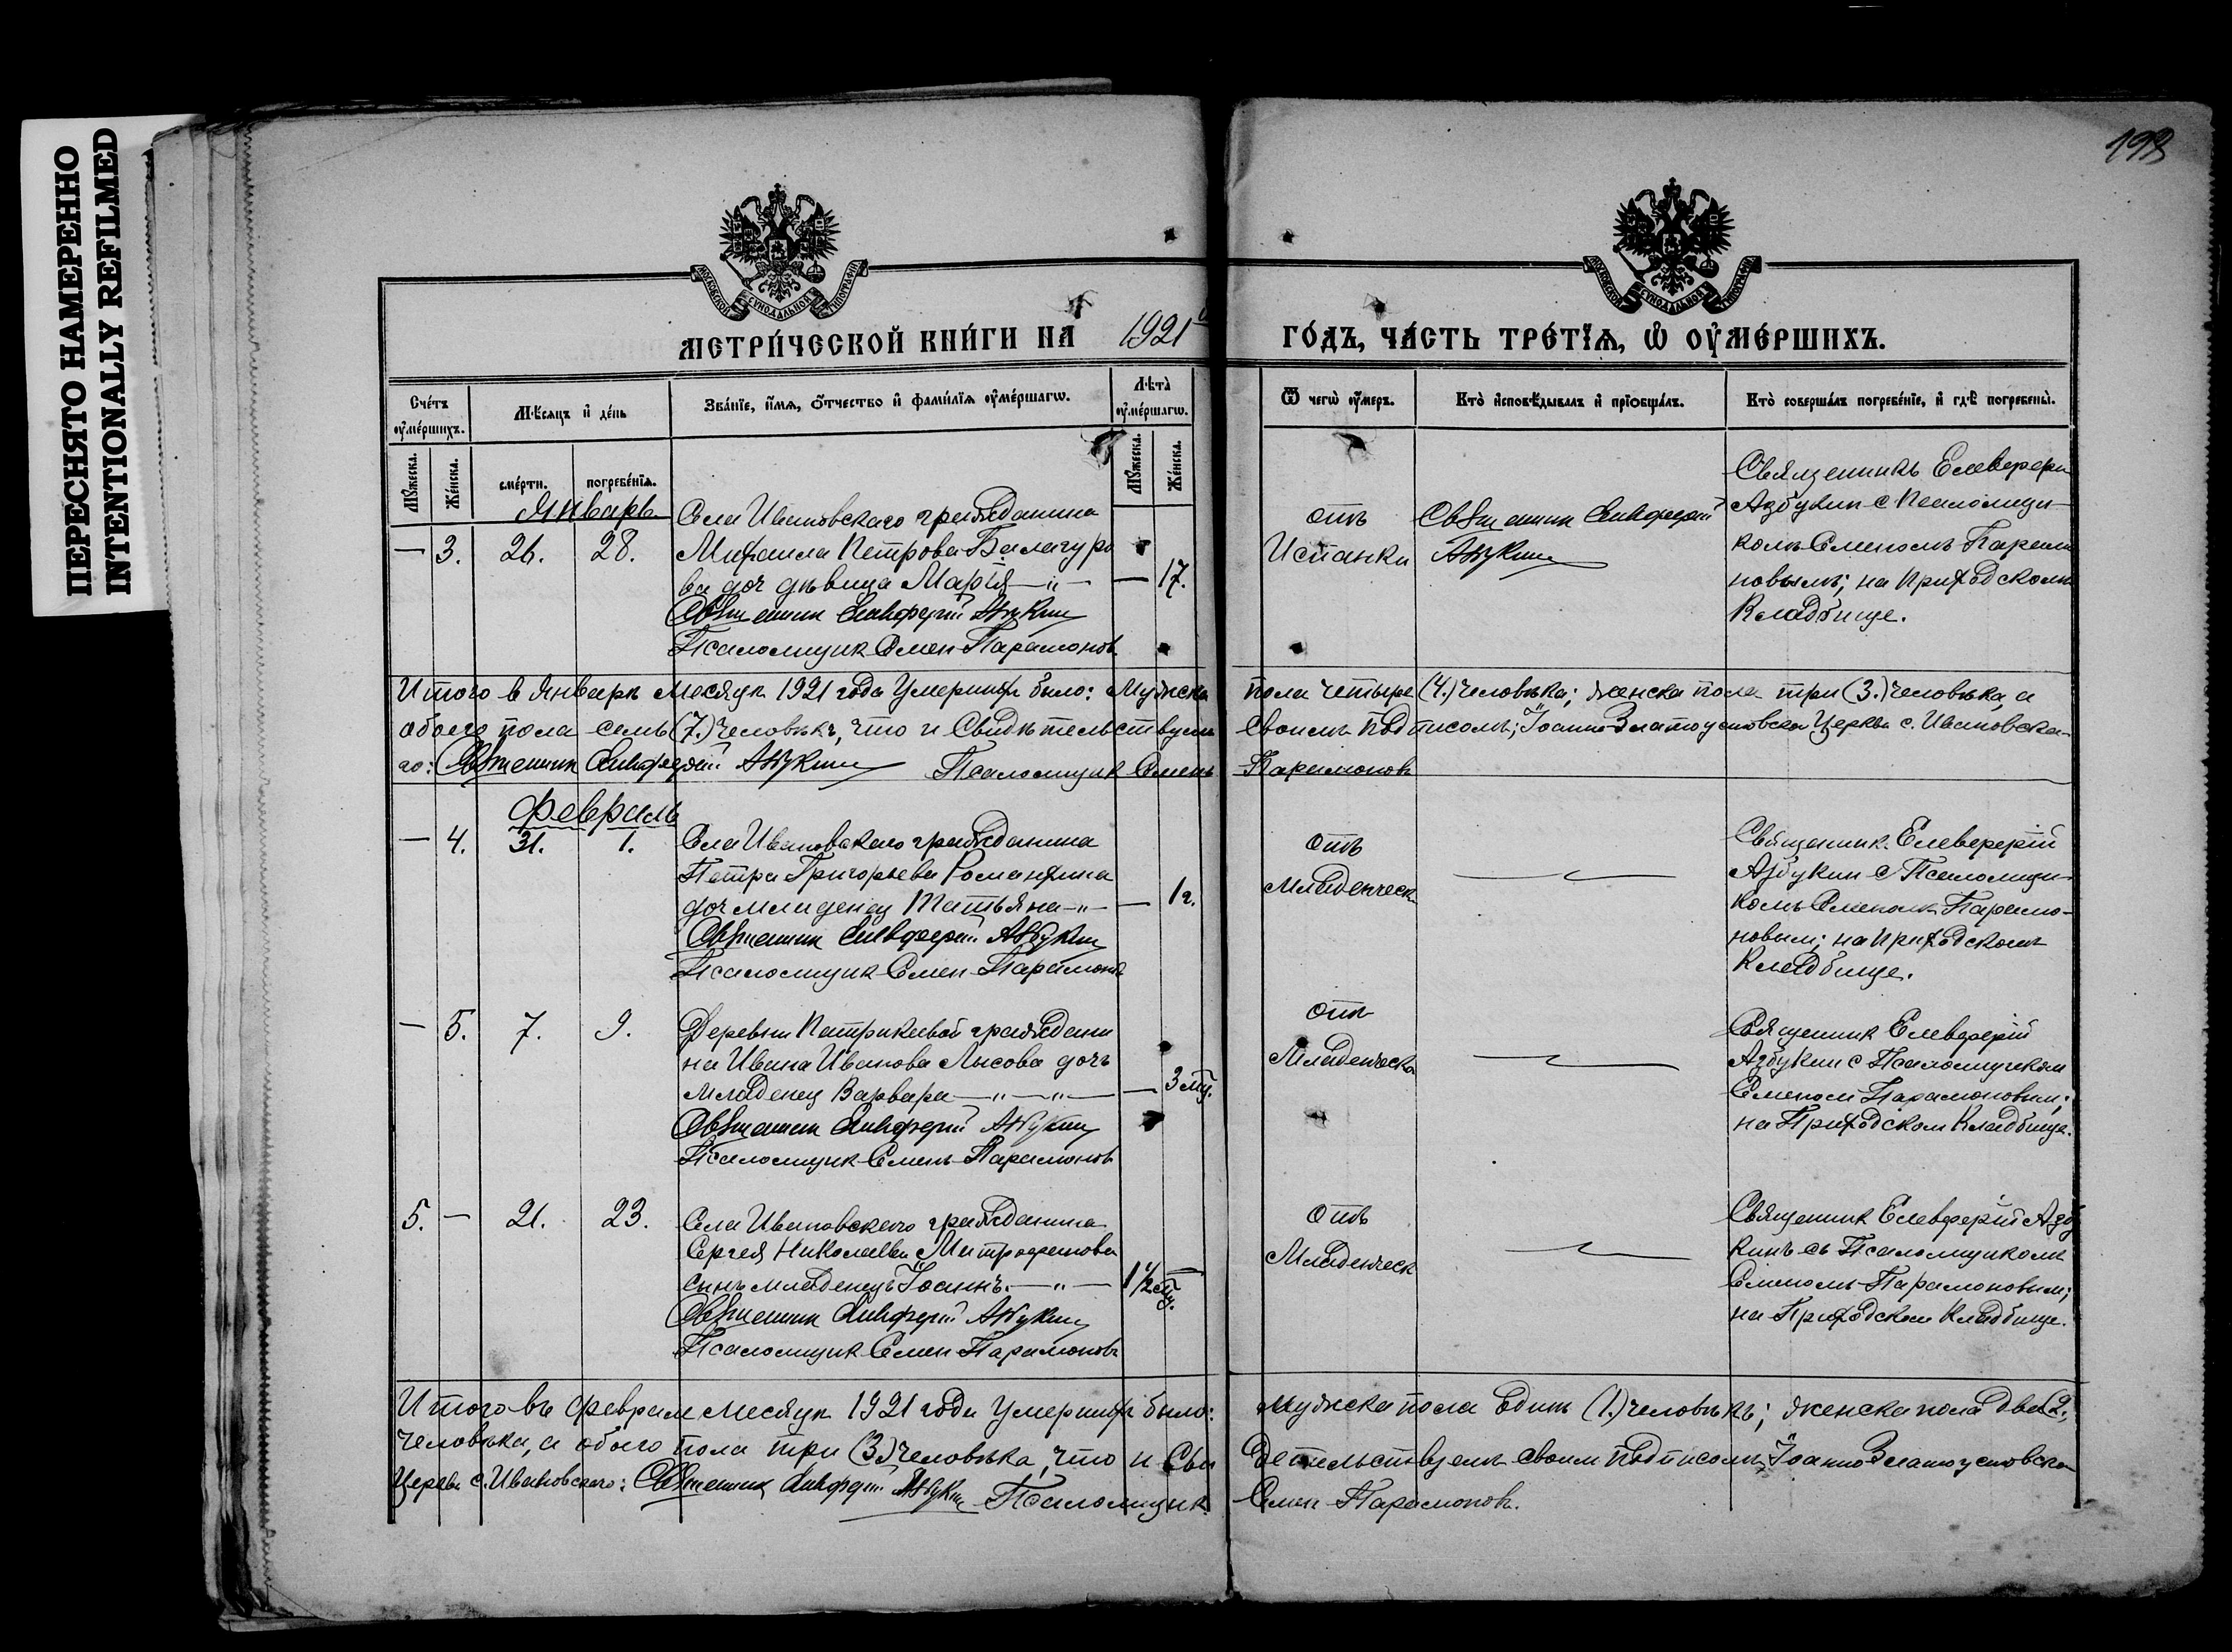 ПЕРЕСНЯТО НАМЕРЕННО
INTENTIONALLY REFILMED
193
МОСКОВСКОЙ СѴНОДАЛЬНОЙ ТИПОГРАФІИ
МОСКОВСКОЙ СѴНОДАЛЬНОЙ ТИПОГРАФІИ
МЕТРИ́ЧЕСКОЙ КНИ́ГИ НА 1921
ГО́ДЪ, ЧА́СТЬ ТРЕ́ТЇѦ, Ѡ ОУ҆МЕ́РШИХЪ.
Сче́тъ оу҆ме́ршихъ.
Мѣ́сяцъ и҆ де́нь
Зва́нїе, и҆́мѧ, ѻ҆́тчество и҆ фами́лїѧ оу҆ме́ршагѡ.
Лѣ́та оу҆ме́ршагѡ.
Ѿ чегѡ̀ оу҆́меръ.
Кто̀ и҆сповѣ́дывалъ и҆ прїѡбща́лъ.
Кто̀ соверша́лъ погребе́нїе, и҆ гдѣ̀ погребены̀.
Мꙋ́жеска.
Же́нска.
сме́рти.
погребе́нїѧ.
Мꙋ́жеска.
Же́нска.
Январь
— 3. 26. 28.
Села Ивановскаго гражданина
Михаила Петрова Балагуро
ва доч дѣвица Марія —"— — 17.
Священник Елевферий Азбукин
Псаломщик Семен Парамонов
отъ
Испанки
Священник Елевферий
Азбукин
Священникъ Елевфери
Азбукин с Псаломщи-
комъ Семеномъ Парамо
новымъ; на Приходскомъ
Кладбище.
Итого в Январѣ месяцѣ 1921 года Умерших было: Мужска пола четыре (4.) человѣка; женска пола три (3.) человѣка, а
обоего пола семь (7.) человѣкъ, что и Свидѣтельствуемъ своимъ подписомъ; Іоанно-Златоустовской Церкви с. Ивановска-
го: Священник Елевферий Азбукин Псаломщик Семенъ Парамоновъ
Февраль
— 4. 31. 1.
Села Ивановскаго гражданина
Петра Григорьева Романихина
доч младенец Татьяна —"— — 1 г.
Священник Елевферий Азбукин
Псаломщик Семен Парамоновъ
отъ
Младенческ
Священник Елевферій
Азбукин с Псаломщи-
комъ Семеномъ Парамо-
новым; на Приходскомъ
Кладбище.
— 5. 7. 9.
Деревни Патрикеевой граждани
на Ивана Иванова Лысова дочь
младенец Варвара —"—"— — 3 мц.
Священник Елевферий Азбукин
Псаломщик Семенъ Парамоновъ
отъ
Младенческа
Священник Елевферій
Азбукин с Псаломщиком
Семеном Парамоновым;
на Приходском Кладбище.
5. — 21. 23.
Села Ивановскаго гражданина
Сергея Николаева Митрофанова
сынъ младенецъ Іоаннъ. —"— 1 1/2 мц. —
Священник Елевферий Азбукин
Псаломщик Семен Парамоновъ
отъ
Младенческ
Священник Елевферій Азбу
кинъ съ Псаломщикомъ
Семеномъ Парамоновым;
на Приходском Кладбище.
Итого въ феврале месяцѣ 1921 года Умерших было: Мужска пола один (1.) человѣкъ; женска пола два (2.
человѣка, а обоего пола три (3.) человѣка, что и Сви детельствуемъ своим подписомъ Іоанно Златоустовска
Церкви с. Ивановскаго: Священник Елевферий Азбукин Псаломщик Семен Парамоновъ.